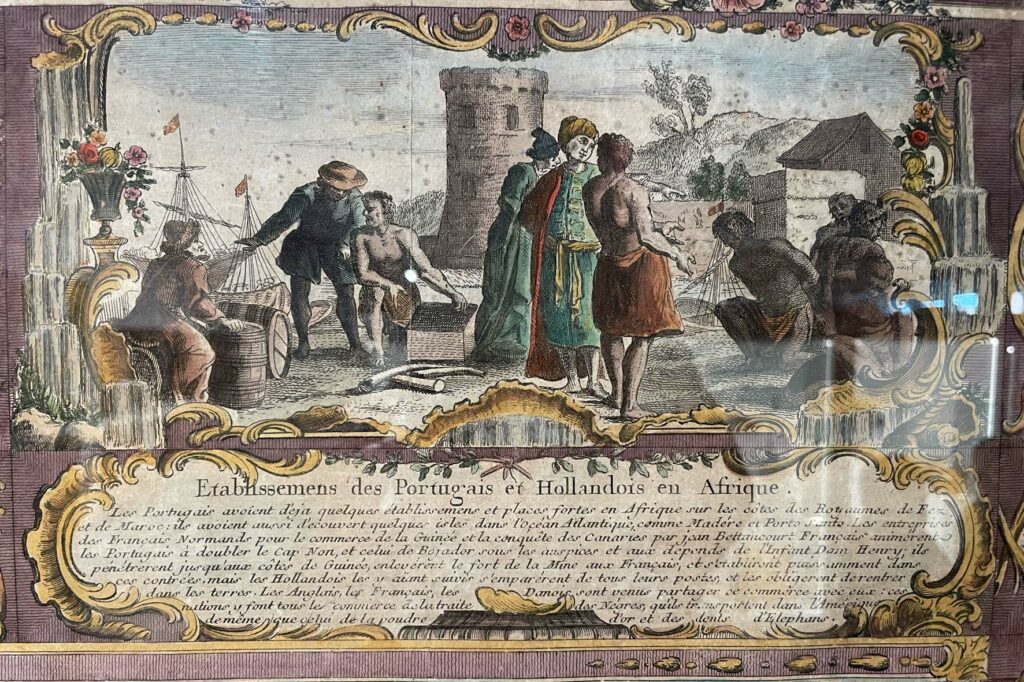 Etablissemens des Portugais et Hollandois en Afrique.
Les Portugais avoient deja quelques établissemens et places fortes en Afrique sur les côtes des Royaumes de Fez
et de Maroc: ils avoient aussi découvert quelques isles dans l'Ocean Atlantique, comme Madére et Porto Santo. Les entreprises
des Français Normands pour le commerce de la Guinée et la conquête des Canaries par jean Bettancourt Français animérent
les Portugais à doubler le Cap Non, et celui de Bojador sous les auspices et aux dépends de l'Infant Dom Henry; ils
pénétrerent jusqu'aux côtes de Guinée, enleverent le fort de la Mine aux Français, et s'établirent puissamment dans
ces contrées, mais les Hollandois les y aiant suivis s'emparérent de tous leurs postes, et les obligerent de rentrer
dans les terres. Les Anglais, les Français, les Danois sont venus partager ce commerce avec eux: ces
nations y font tous les commerce à la traite des Negres, qu'ils transportent dans l'Amérique
de même que celui de la poudre d'or et des dents d'Elephans.